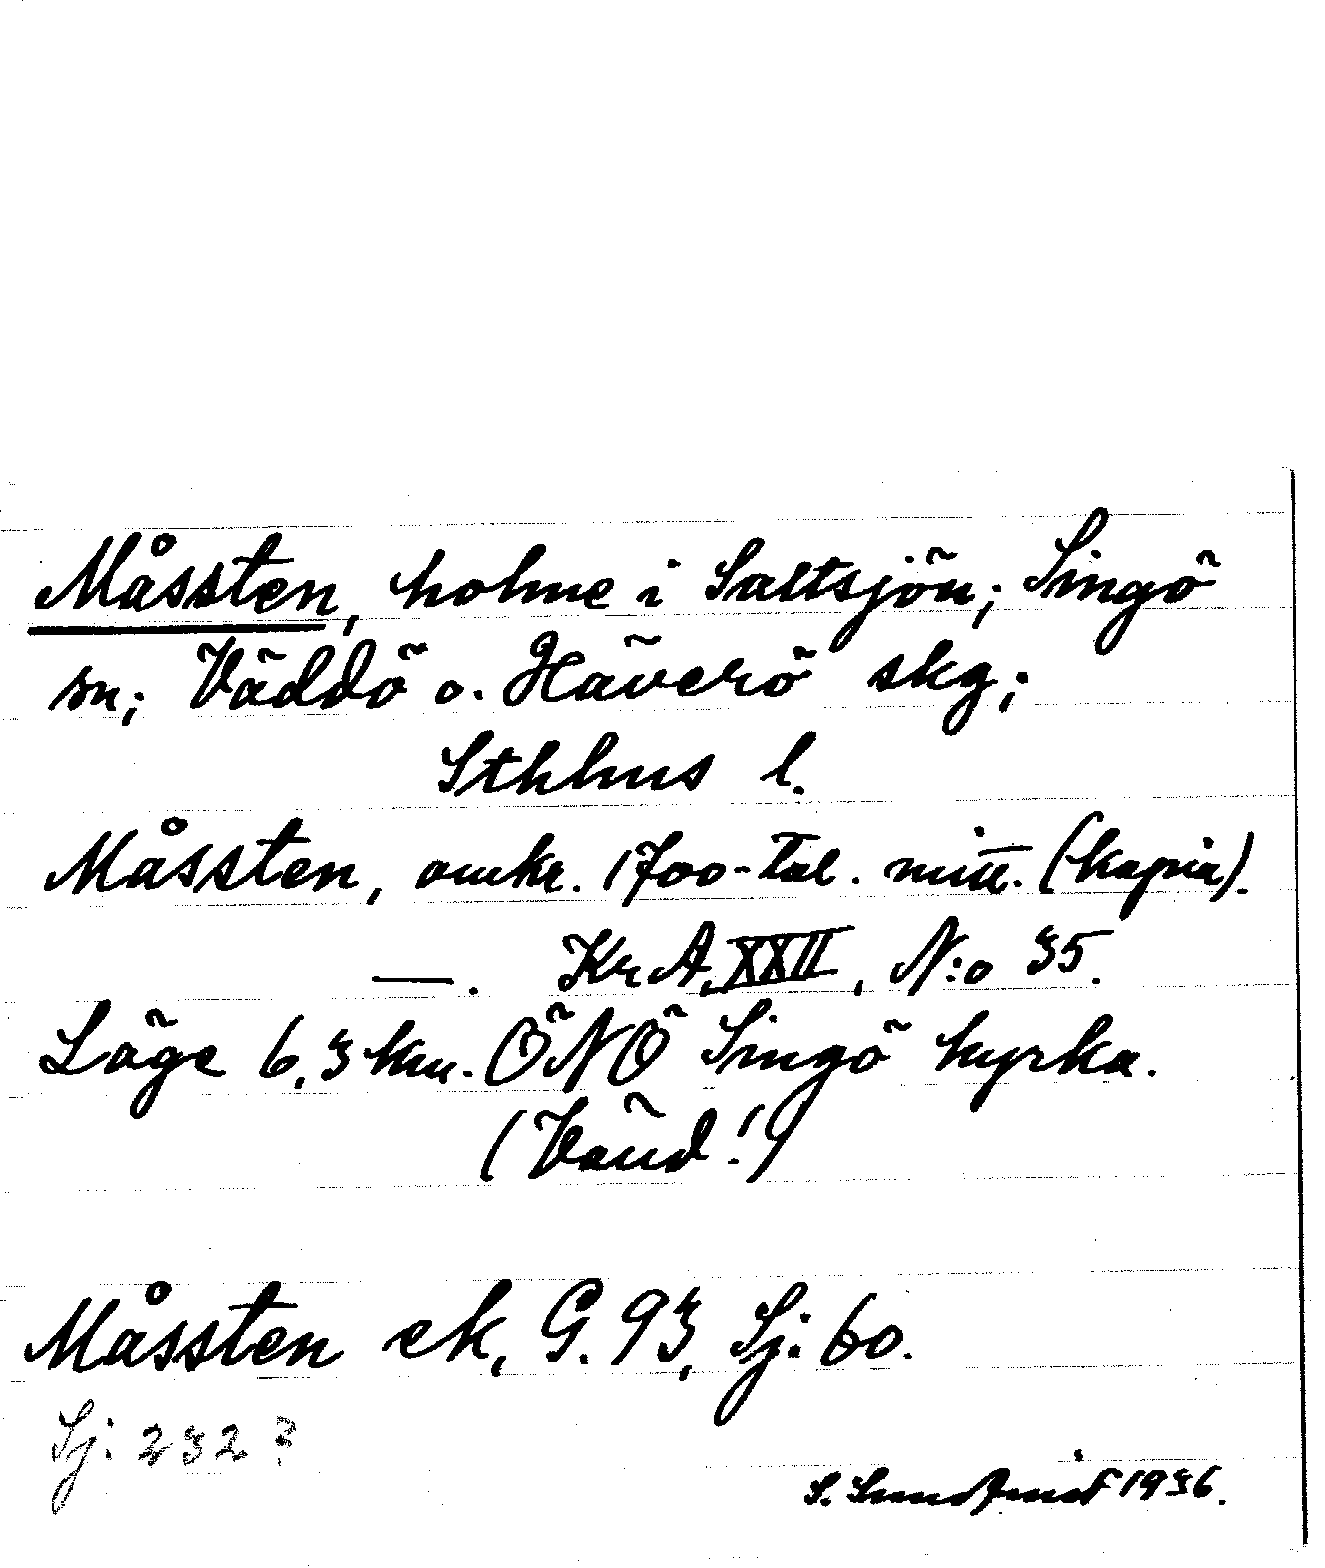 Måssten, holme i Saltsjön; Singö
sn; Väddö o. Häverö skg;
Sthlms l.
Måssten, omkr. 1700-tal. mitt. (kopia).
—. KrA, XXII, N:o 35.
Läge 6,3 km. ÖNÖ Singö kyrka.
(Vänd!)
Måssten ek, G. 93, Sj: 60.
Sj: 232?
S. Lundqvist 1936.